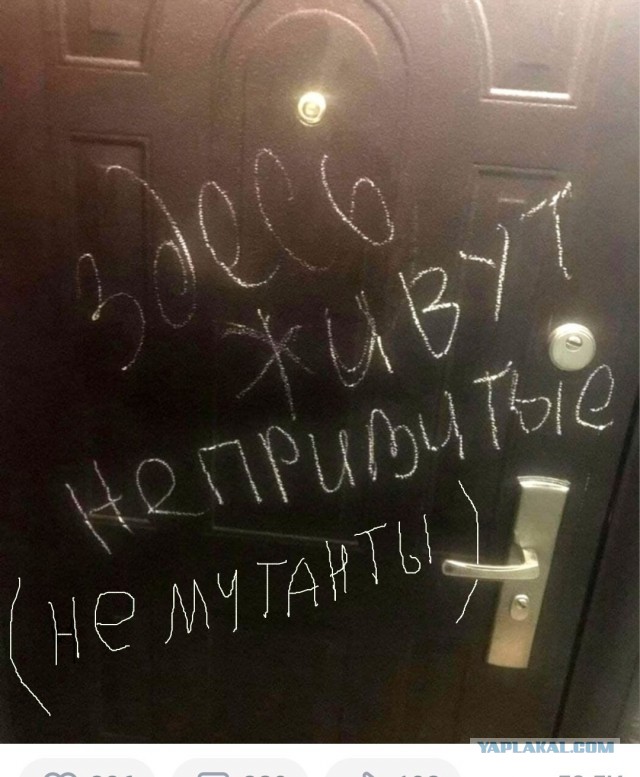 здесь
живут
непривитые
(не мутанты)
YAPLAKAL.COM